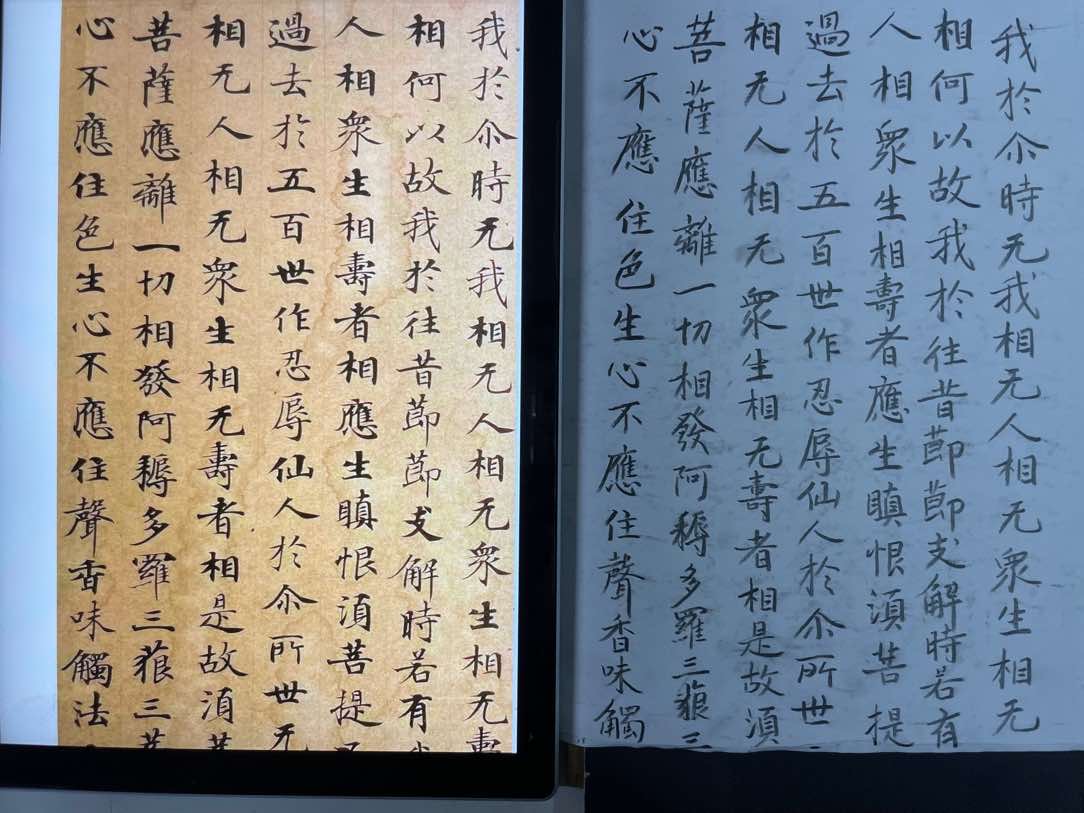 我於尒時无我相无人相无衆生相无壽
相何以故我於往昔莭莭支解時若有
人相衆生相壽者相應生瞋恨湏菩提
過去於五百世作忍辱仙人於尒所世无
相无人相无衆生相无壽者相是故湏菩
菩薩應離一切相發阿耨多羅三藐三菩
心不應住色生心不應住聲香味觸法
我於尒時无我相无人相无衆生相无
相何以故我於往昔莭莭支解時若有
人相衆生相壽者應生瞋恨湏菩提
過去於五百世作忍辱仙人於尒所世
相无人相无衆生相无壽者相是故湏
菩薩應離一切相發阿耨多羅三藐三
心不應住色生心不應住聲香味觸